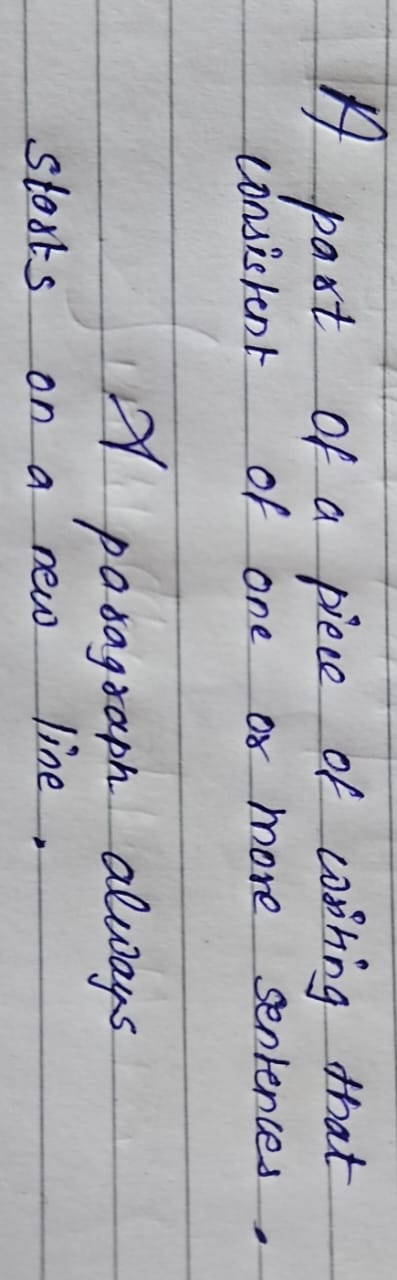 A part of a piece of writing that
consistent of one or more sentences.
A paragraph always
starts on a new line.